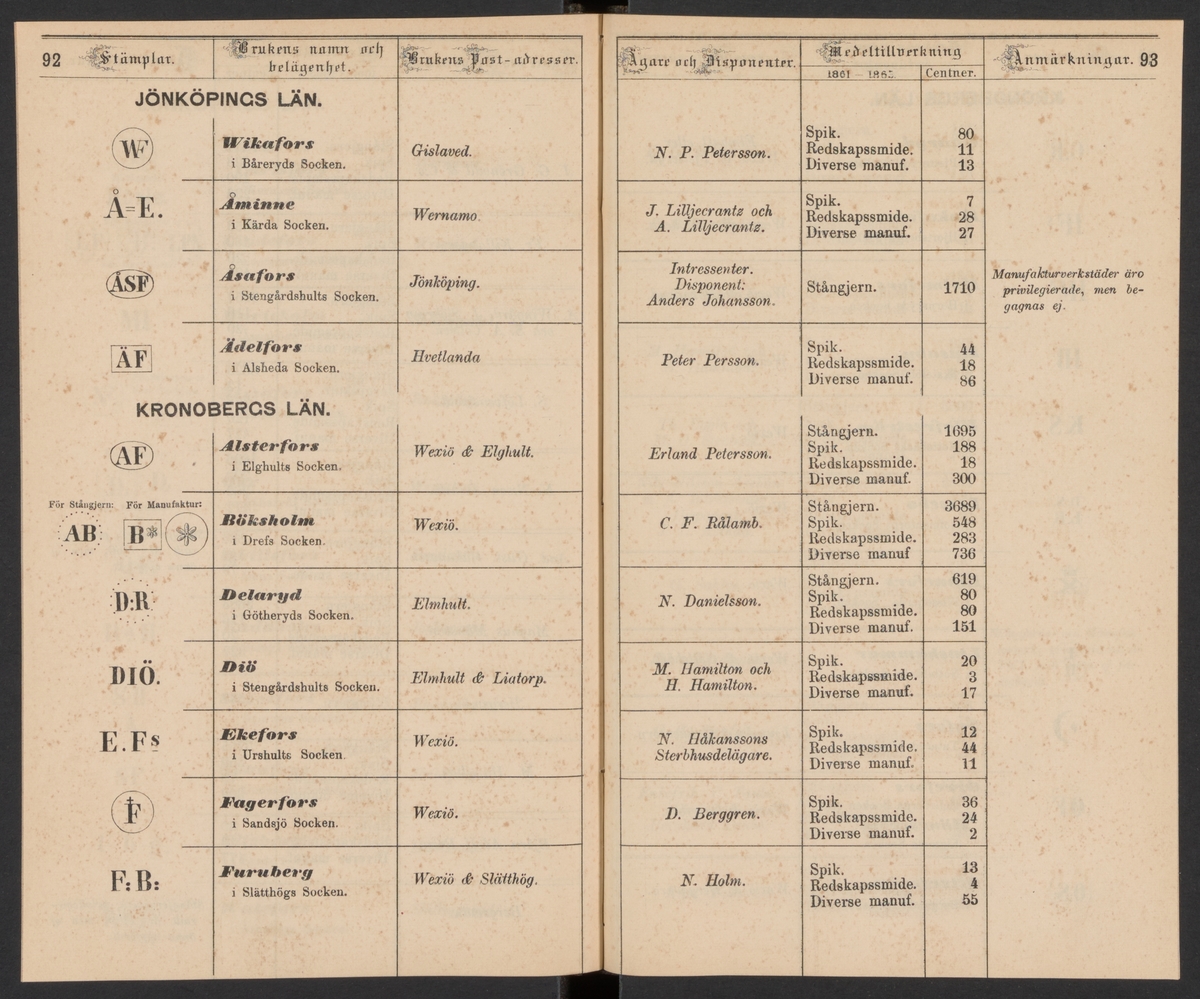 92 Stämplar. Brukens namn och belägenhet. Brukens Post-adresser. Ägare och Disponenter. Medeltillverkning Anmärkningar. 93
1861 Centner.
JÖNKÖPINGS LÄN.
WF
Wikafors
i Båreryds Socken.
Gislaved.
N. P. Petersson.
Spik. 80
Redskapssmide. 11
Diverse manuf. 13
Å=E.
Åminne
i Kärda Socken.
Wernamo.
J. Lilljecrantz och
A. Lilljecrantz.
Spik. 7
Redskapssmide. 28
Diverse manuf. 27
ÅSF
Åsafors
i Stengårdshults Socken.
Jönköping.
Intressenter.
Disponent:
Anders Johansson.
Stångjern. 1710
Manufakturverkstäder äro
privilegierade, men be-
gagnas ej.
ÄF
Ädelfors
i Alsheda Socken.
Hvetlanda
Peter Persson.
Spik. 44
Redskapssmide. 18
Diverse manuf. 86
KRONOBERGS LÄN.
AF
Alsterfors
i Elghults Socken.
Wexiö & Elghult.
Erland Petersson.
Stångjern. 1695
Spik. 188
Redskapssmide. 18
Diverse manuf. 300
För Stångjern: För Manufaktur:
AB B
Böksholm
i Drefs Socken.
Wexiö.
C. F. Rålamb.
Stångjern. 3689
Spik. 548
Redskapssmide. 283
Diverse manuf 736
D:R
Delaryd
i Götheryds Socken.
Elmhult.
N. Danielsson.
Stångjern. 619
Spik. 80
Redskapssmide. 80
Diverse manuf. 151
DIÖ.
Diö
i Stengårdshults Socken.
Elmhult & Liatorp.
M. Hamilton och
H. Hamilton.
Spik. 20
Redskapssmide. 3
Diverse manuf. 17
E.Fs
Ekefors
i Urshults Socken.
Wexiö.
N. Håkanssons
Sterbhusdelägare.
Spik. 12
Redskapssmide. 44
Diverse manuf. 11
F
Fagerfors
i Sandsjö Socken.
Wexiö.
D. Berggren.
Spik. 36
Redskapssmide. 24
Diverse manuf. 2
F:B:
Furuberg
i Slätthögs Socken.
Wexiö & Slätthög.
N. Holm.
Spik. 13
Redskapssmide. 4
Diverse manuf. 55